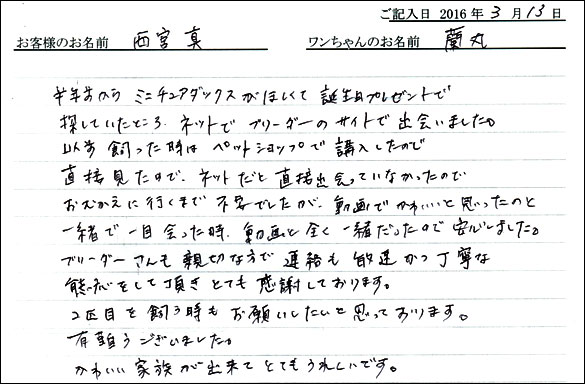 ご記入日 2016年3月13日
お客様のお名前 西宮真 ワンちゃんのお名前 蘭丸
半年前から ミニチュアダックスがほしくて 誕生日プレゼントで
探していたところ、ネットで ブリーダーの サイトで 出会いました。
以前 飼った時は ペットショップで 購入したので
直接見たので、ネットだと 直接出会っていなかったので
おむかえに行くまで 不安でしたが、動画で かわいいと思ったのと
一緒で 一目会った時、動画と 全く 一緒だったので 安心しました。
ブリーダーさんも 親切な方で 連絡も 敏速かつ丁寧な
対応をして頂き とても 感謝しております。
2匹目を 飼う時も お願いしたいと 思っております。
有難うございました。
かわいい 家族が 出来て とても うれしいです。